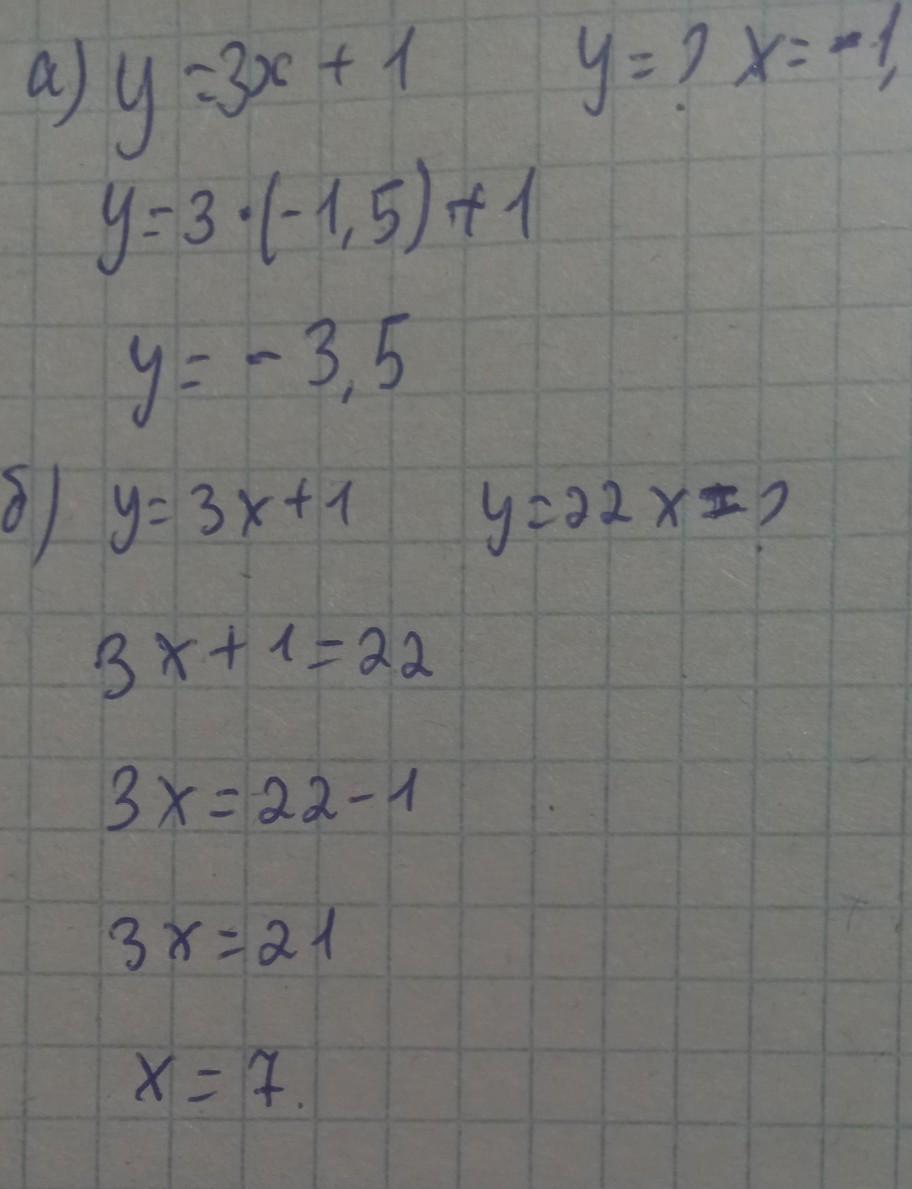 а) y=3x+1 y=? x=-1,
y=3·(-1,5)+1
y=-3,5
б) y=3x+1 y=22 x=?
3x+1=22
3x=22-1
3x=21
x=7.